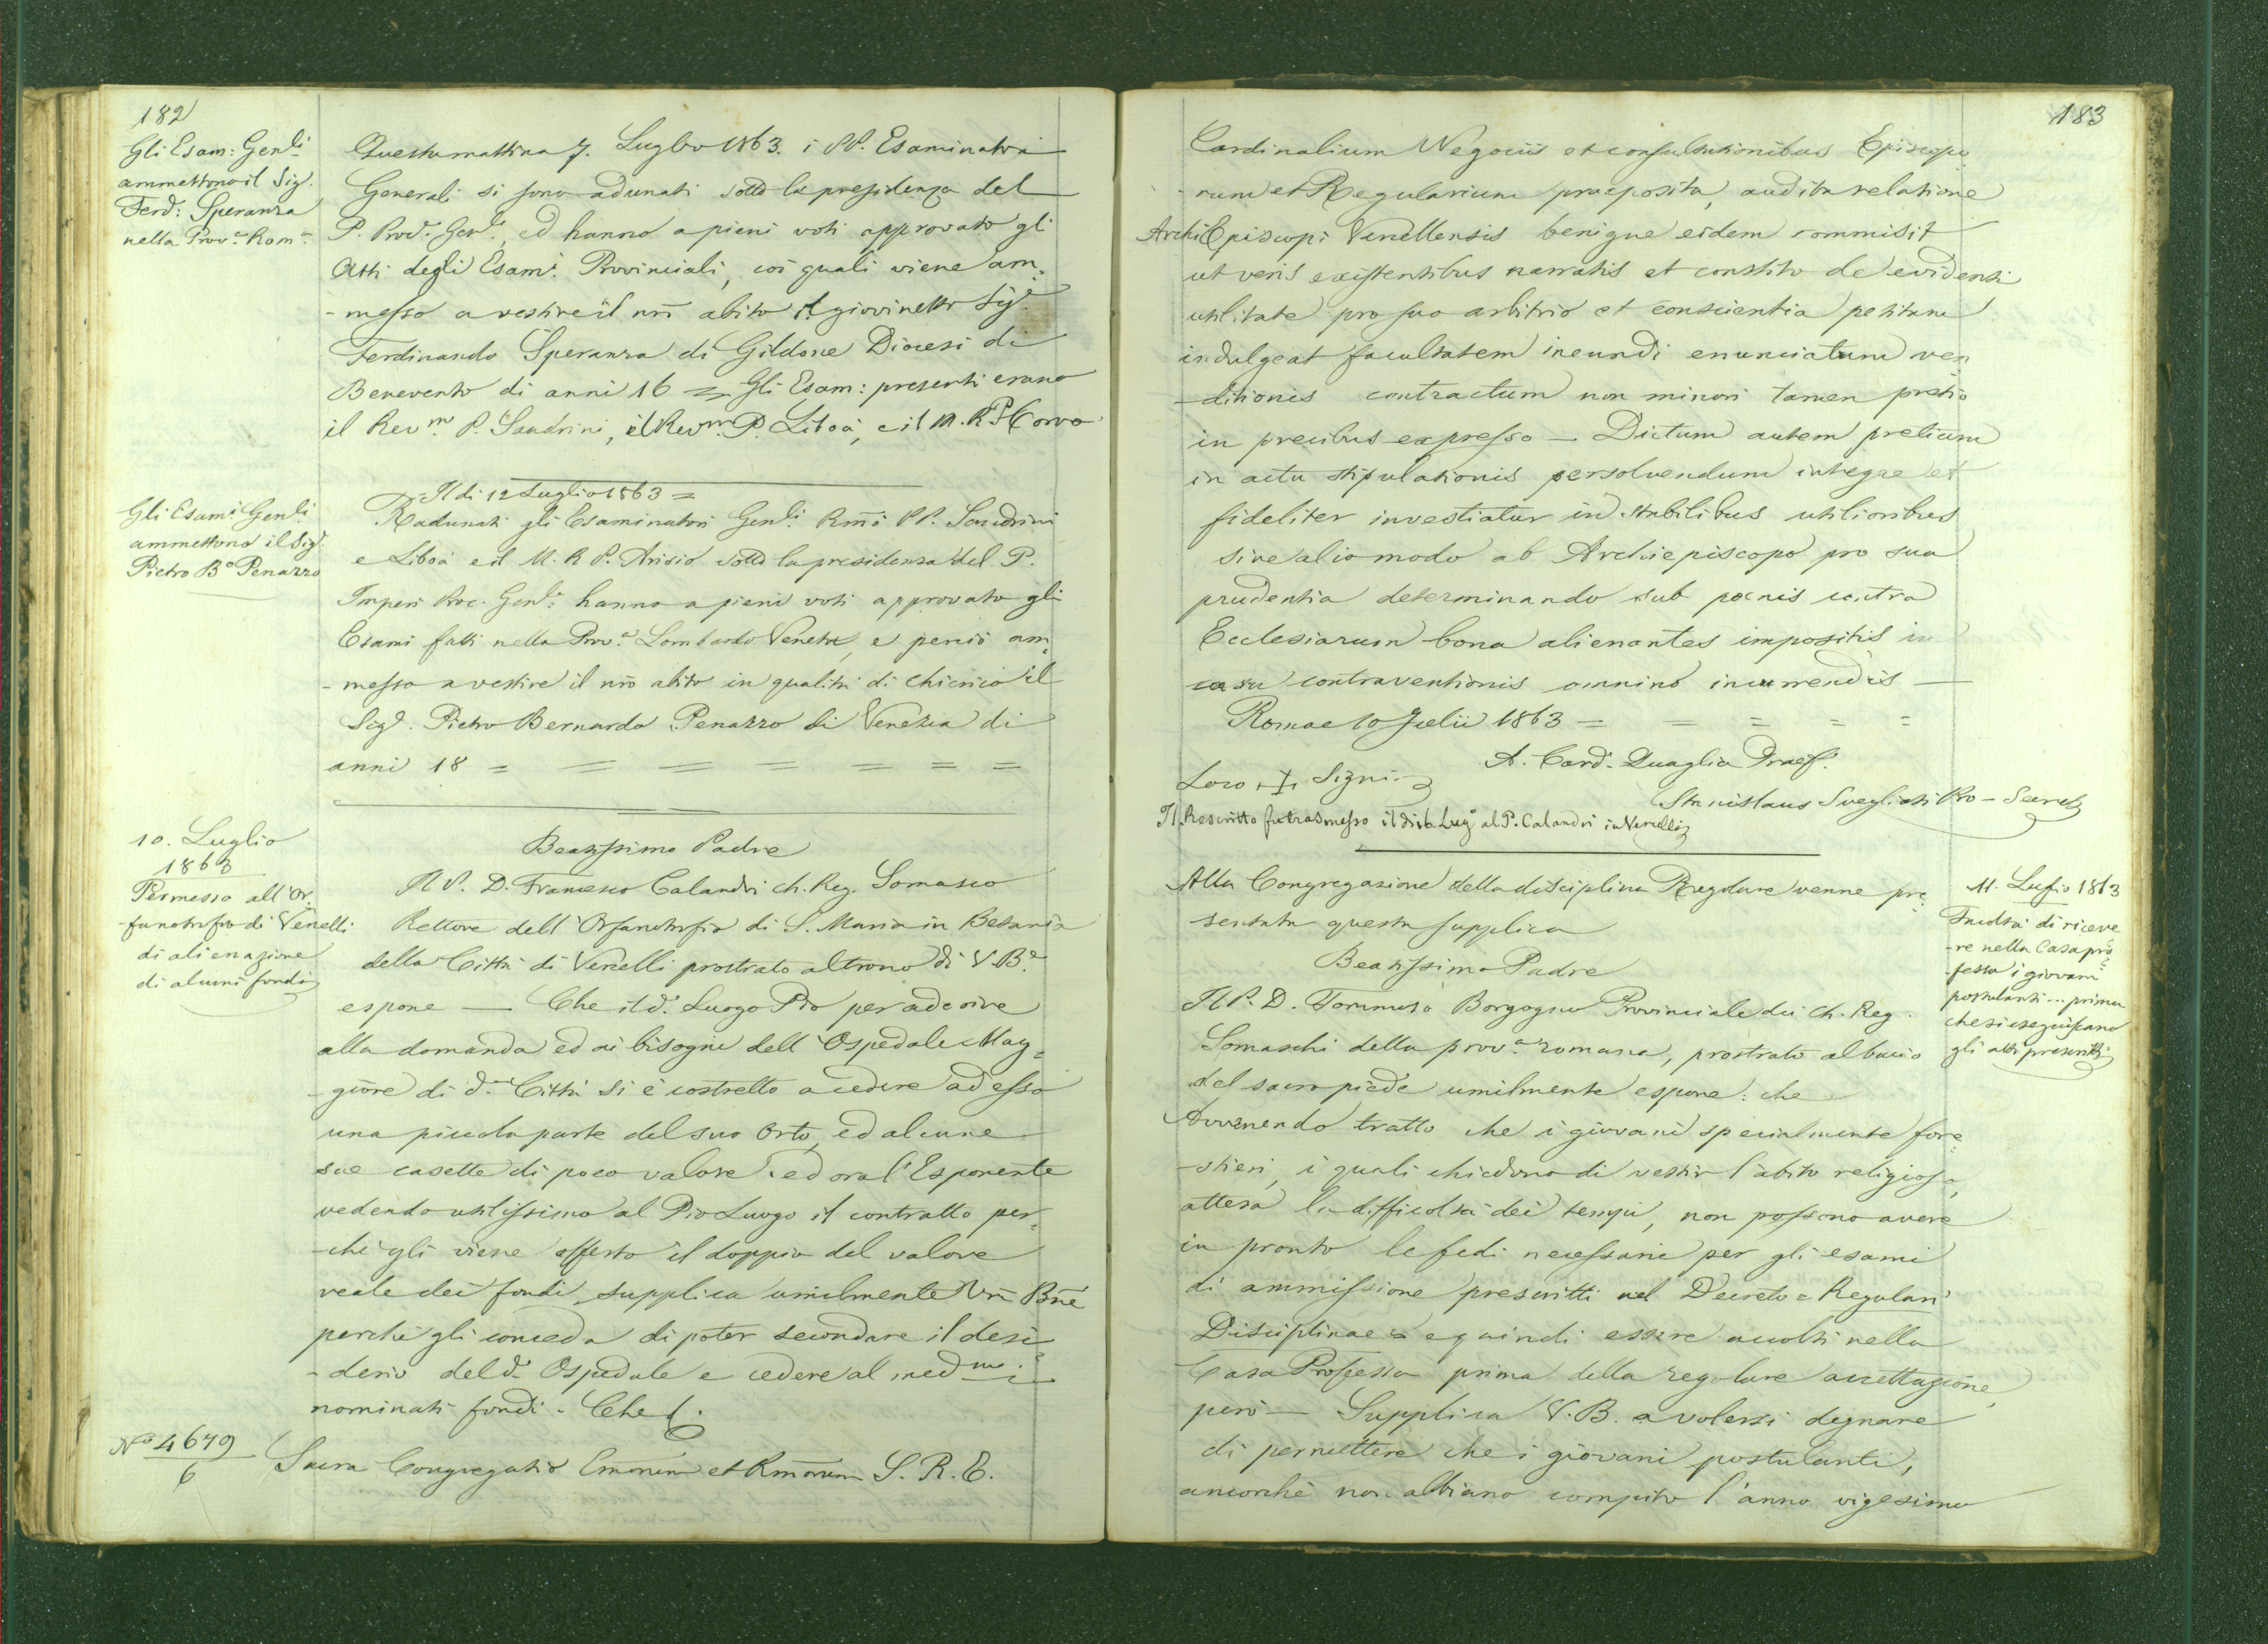 182
Gli Esam: Genli
ammettono il Sig.
Ferd: Speranza
nella Prov.a Rom.a
Questa mattina 7. Luglio 1863. i PP. Esaminatori
Generali si sono adunati sotto la presidenza del
P. Proc. Genle, ed hanno a pieni voti approvato gli
Atti degli Esami Provinciali, coi quali viene am=
-messo a vestire il nrō abito il giovinetto Sigr
Ferdinando Speranza di Gildone Diocesi di
Benevento di anni 16 = Gli Esam: presenti erano
il Revmo P. Sandrini, il Revmo P. Liboà, e il M. R. P. Corvo
Gli Esami Genli
ammettono il Sigr.
Pietro Bo Penazzo
Il di 12 Luglio 1863 =
Radunati gli Esaminatori Genli Rmi PP. Sandrini
e Liboà e il M. R. P. Arisio sotto la presidenza del P.
Imperi Proc. Genle hanno a pieni voti approvato gli
Esami fatti nella Prov.a Lombardo Veneta, e perciò am=
-messo a vestire il nrō abito in qualità di chierico il
Sigr. Pietro Bernardo Penazzo di Venezia di
anni 18 = = = = = = =
10. Luglio
1863
Permesso all'Or-
-fanotrofio di Vercelli
di alienazione
di alcuni fondi
Beatissimo Padre
Il P. D. Francesco Calandri Ch. Reg. Somasco
Rettore dell'Orfanotrofio di S. Maria in Betania
della Città di Vercelli prostrato al trono di V. B.e
espone — Che il do. Luogo Pio per aderire
alla domanda ed ai bisogni dell'Ospedale Mag=
-giore di da. Città si è costretto a cedere ad esso
una piccola parte del suo orto, ed alcune
sue casette di poco valore: ed ora l'Esponente
vedendo utilissimo al Pio Luogo il contratto per=
-chè gli viene offerto il doppio del valore
reale dei fondi, supplica umilmente Vrā Bnē
perchè gli conceda di poter secondare il desi=
-derio del do. Ospedale e cedere al medmo i
nominati fondi. Che &.
No 4679
6
Sacra Congregatio Emorum et Rmorum S. R. E.
183
Cardinalium Negociis et consultationibus Episcopo
-rum et Regularium praeposita, audita relatione
Archi Episcopi Vercellensis benigne eidem commisit
ut veris existentibus narratis et constito de evidenti
utilitate pro suo arbitrio et conscientia petitam
indulgeat facultatem ineundi enunciatum ven
-ditionis contractum non minori tamen pretio
in precibus expresso — Dictum autem pretium
in actu stipulationis persolvendum integre et
fideliter investiatur in stabilibus utilioribus
sive alio modo ab Archiepiscopo pro sua
prudentia determinando sub poenis contra
Ecclesiarum bona alienantes impositis in
casu contraventionis omnino incurrendis —
Romae 10 Julii 1863 = = = = =
A. Card. Quaglia Praef.
Loco + Signi
Stanislaus Svegliati Pro-Secret
Il Rescritto fu trasmesso il di 16 Lugo al P. Calandri in Vercelli
Alla Congregazione della disciplina Regolare venne pre
sentata questa supplica
11. Luglio 1863
Facoltà di riceve
-re nella Casa pro=
-fessa i giovani
postulanti... prima
che si eseguiscano
gli atti prescritti
Beatissimo Padre
Il P. D. Tommaso Borgogno Provinciale dei Ch. Reg.
Somaschi della prov.a romana, prostrato al bacio
del sacro piede umilmente espone: che
Avvenendo tratto che i giovani specialmente fore=
-stieri, i quali chiedono di vestir l'abito religioso,
attesa la difficoltà dei tempi, non possono avere
in pronto le fedi necessarie per gli esami
di ammissione prescritti nel Decreto = Regulari
Disciplinae = e quindi essere accolti nella
Casa Professa prima della regolare accettazione,
però — Supplica V. B. a volersi degnare
di permettere che i giovani postulanti,
ancorchè non abbiano compito l'anno vigesimo